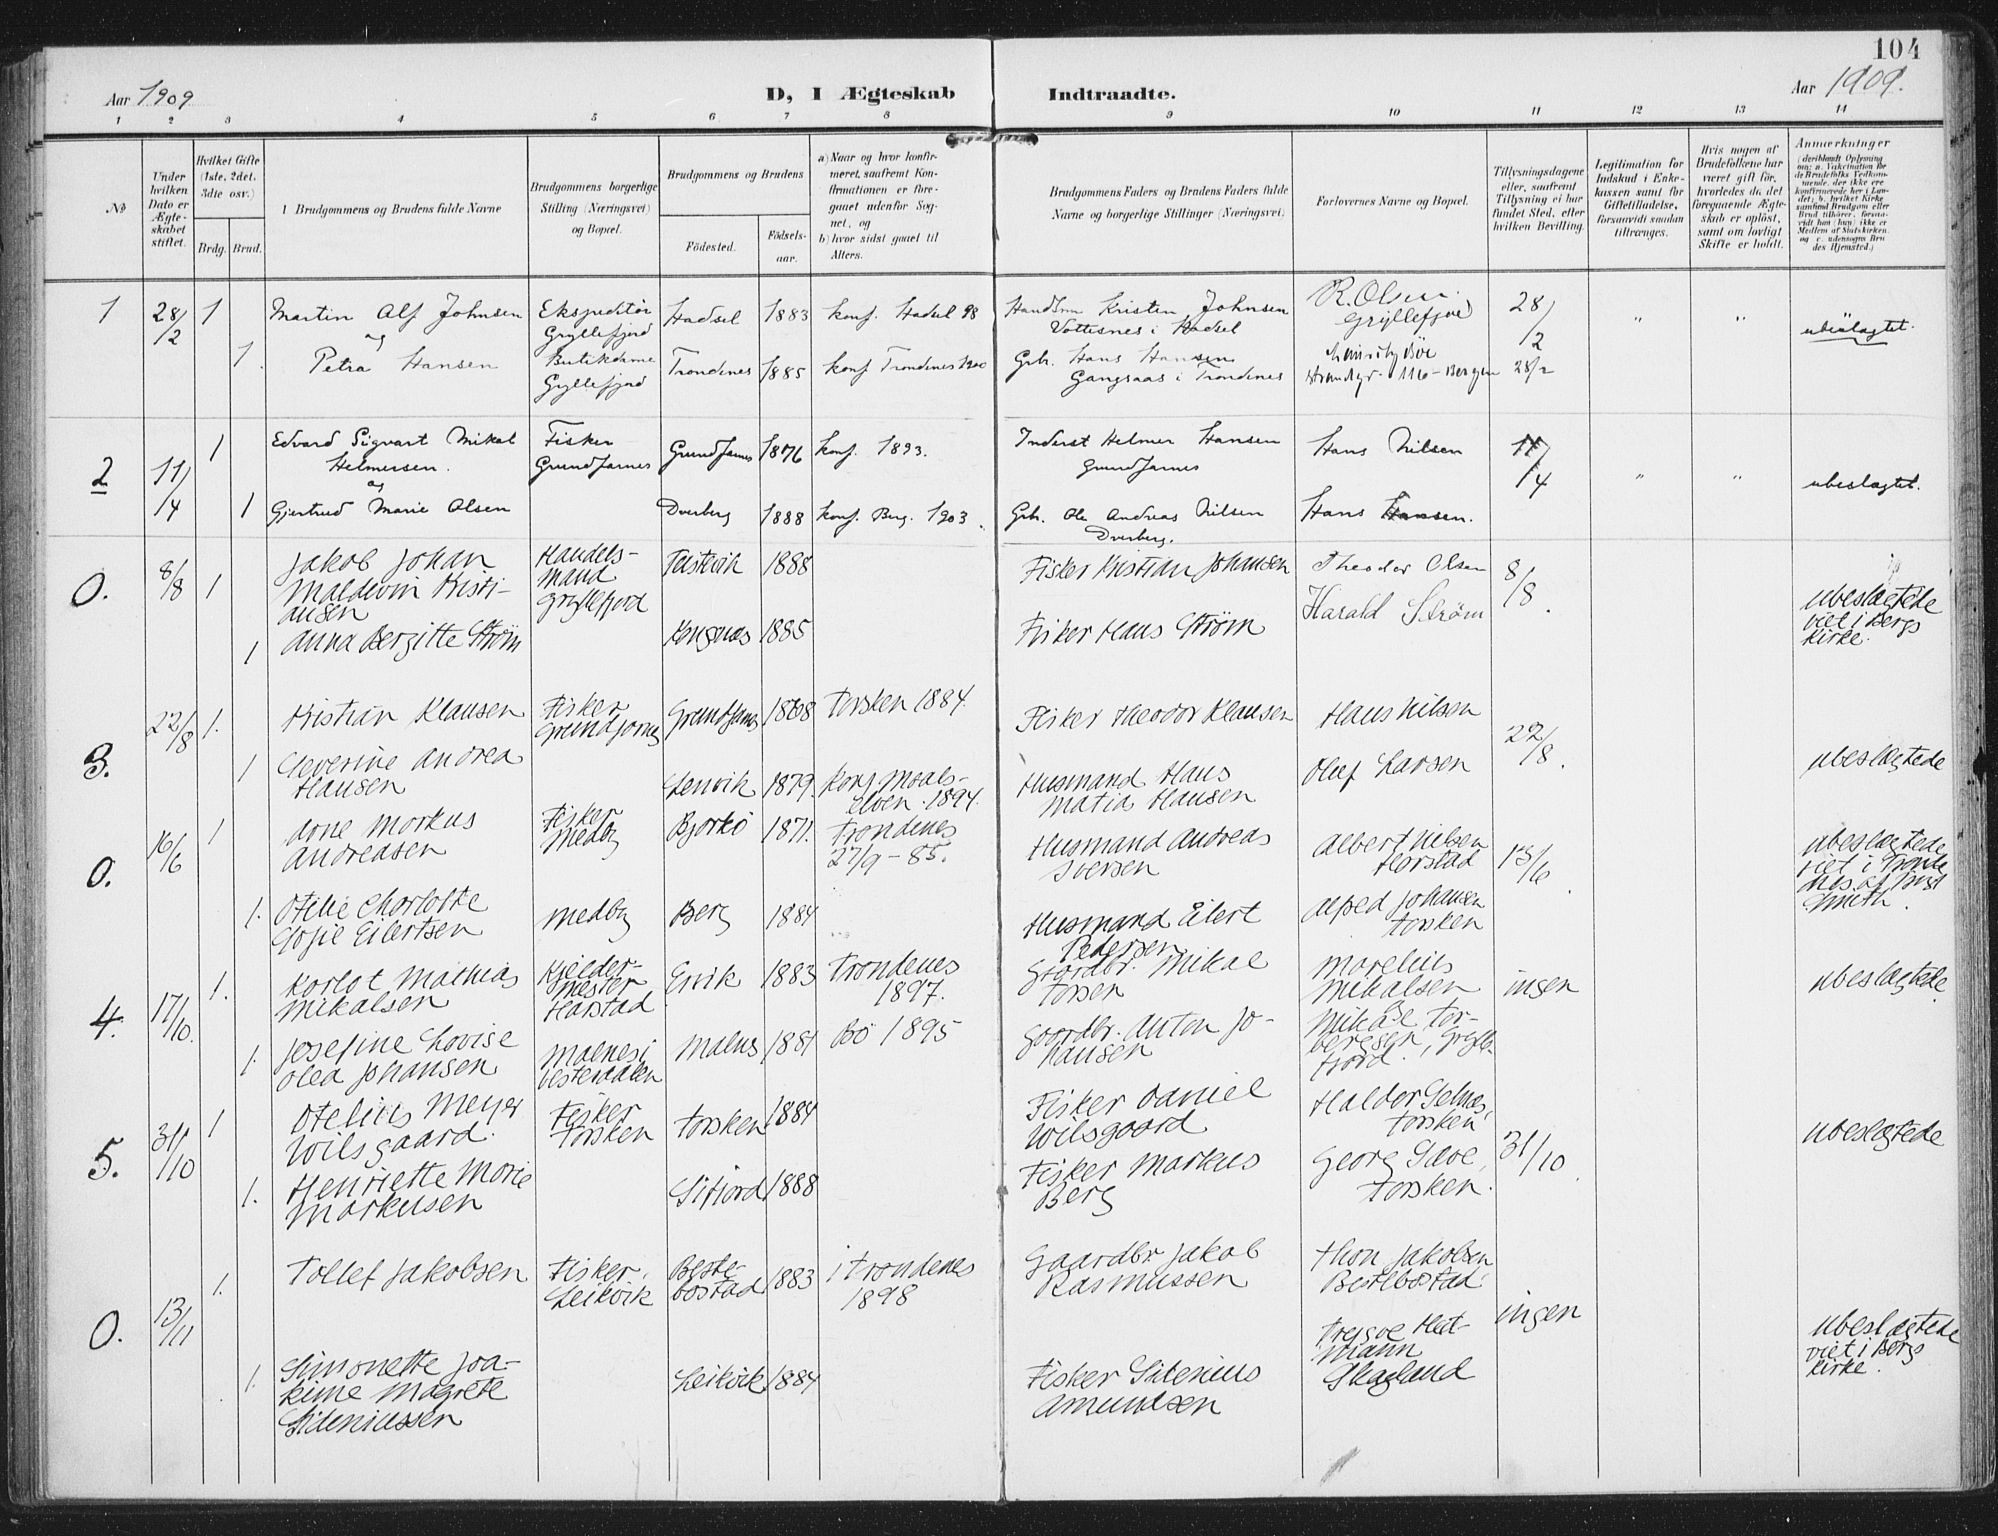 104
Aar 1909
D, I Ægteskab Indtraadte.
Aar 1909.
1 2 3 4 5 6 7 8 9 10 11 12 13 14
No
Under hvilken Dato er Ægteskabet stiftet.
Hvilket Gifte (1ste, 2det, 3die osv.)
Brdg. Brud.
1 Brudgommens og Brudens fulde Navne
Brudgommens borgerlige Stilling (Næringsvei) og Bopæl.
Brudgommens og Brudens
Fødested.
Fødselsaar.
a) Naar og hvor konfirmeret, saafremt Konfirmationen er foregaaet udenfor Sognet, og
b) hvor sidst gaaet til Alters.
Brudgommens Faders og Brudens Faders fulde Navne og borgerlige Stillinger (Næringsvei)
Forlovernes Navne og Bopæl.
Tillysningsdagene eller, saafremt Tillysning ei har fundet Sted, efter hvilken Bevilling.
Legitimation for Indskud i Enkekassen samt for Giftetilladelse, forsaavidt saadan tiltrænges.
Hvis nogen af Brudefolkene har været gift før, hvorledes da det foregaaende Ægteskab er opløst, samt om lovligt Skifte er holdt.
Anmærkninger
1 28/2 1 Martin Alf Johnsen Ekspeditør Gryllefjord Hadsel 1883 konf. Hadsel 98 Handlsm Kristen Johnsen Vottesnes i Hadsel R. Olsen. Gryllefjord 28/2 " " ubeslagtet.
og
1. Petra Hansen Butikdame Gryllefjord Trondenes 1885 konf Trondenes 1900 Grb. Hans Hansen Gangsaas i Trondenes 116 - Bergen 28/2
2 11/4 1 Edvard Sigvart Mikal Helmersen. Fisker Grundfarnes Grundfarnes 1876 konf. 1893. Inderst Helmer Hansen Grundfarnes Hans Nilsen 11/4 " " ubeslagtet.
og
1 Gjertrud Marie Olsen Dverberg 1888 konf. Berg. 1903. Grb. Ole Andreas Nilsen Dverberg. Hans Hansen.
0. 8/8 1 Jakob Johan Maldevin Kristiansen Handelsmand Gryllefjord 1888 Fisker Kristian Johansen Theodor Olsen 8/8. ubeslægtede viet i Bergs Kirke.
1 Anna Bergitte Strøm Kongsnes 1885 Fisker Hans Strøm Harald Strøm
3. 22/8 1. Kristian Klausen Fisker Grundfarnes Grundfarnes 1868 Torsken 1884 Fisker Theodor Klausen Hans Nilsen 22/8. ubeslægtede
1 Severine Andrea Hansen Lenvik 1879. Konf. Maalselven. 1894. Husmand Hans Matias Hansen Oluf Larsen
0. 16/6 1 Arne Markus Andreasen Fisker Medby Bjorkö 1871. Trondenes 27/9 - 85. Husmand Andreas Iversen Albert Nilsen Harstad 13/6. ubeslægtede viet i Trondenes af Smith.
1. Otelie Charlotte Sofie Eilertsen Medby Berg 1884 Husmand Eilert Pedersen Alfred Johansen Torsken
4. 17/10. 1. Karlot Mathias Mikalsen Kjeldermester Harstad Ervik 1883 Trondenes 1897. Gaardbr. Mikal Torsen Marelius Mikalsen ingen ubeslægtede
1. Josefine Lovise Olea Johansen Malnes i Vesteraalen Malnes 1881 Bö 1895 Gaardbr. Anton Johansen Mikal Torbergsen, Gryllefjord.
5. 31/10 1 Otelius Meyer Wilsgaard. Fisker Torsken Torsken 1884 Fisker Daniel Wilsgaard Haldor Selnæs, Torsken 31/10. ubeslægtede
1. Henriette Marie Markusen Sifjord 1888 Fisker Markus Berg Georg Torsken.
0. 13/11 1. Tollef Jakobsen Fisker, Leikvik Bestebostad 1883 i Trondenes 1898 Gaardbr. Jakob Rasmussen Thon Jakobsen Bestebostad ingen ubeslægtede viet i Bergs Kirke.
1. Simonette Joakime Magrete Sideniussen Leikvik 1884 Fisker Sidenius Amundsen Trygve Hartmann Skagland